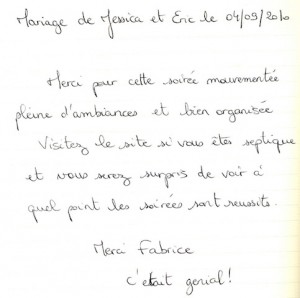 Mariage de Jessica et Eric le 04/09/2010
Merci pour cette soirée mouvementée
pleine d'ambiances et bien organisée
Visitez le site si vous êtes septique
et vous serez surpris de voir à
quel point les soirées sont reussits.
Merci Fabrice
c'etait genial!